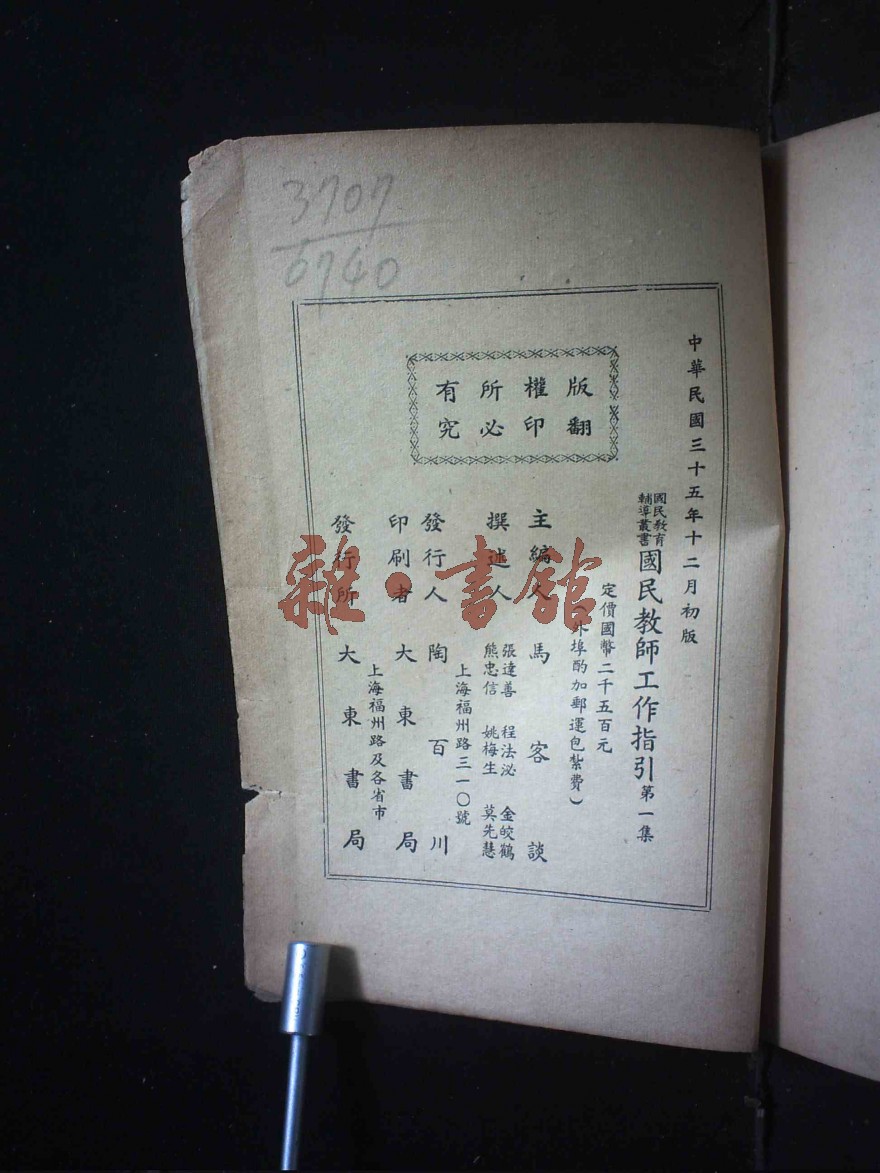 3707
6740
中華民國三十五年十二月初版
國民教育
輔導叢書
國民教師工作指引第一集
定價國幣二千五百元
(外埠酌加郵運包紮費)
版權所有
翻印必究
主編人 馬客談
撰述人
張達善 程法泌 金皎鶴
熊忠信 姚梅生 莫先慧
發行人 陶百川
上海福州路三一〇號
印刷者 大東書局
發行所 大東書局
上海福州路及各省市
雜·書館